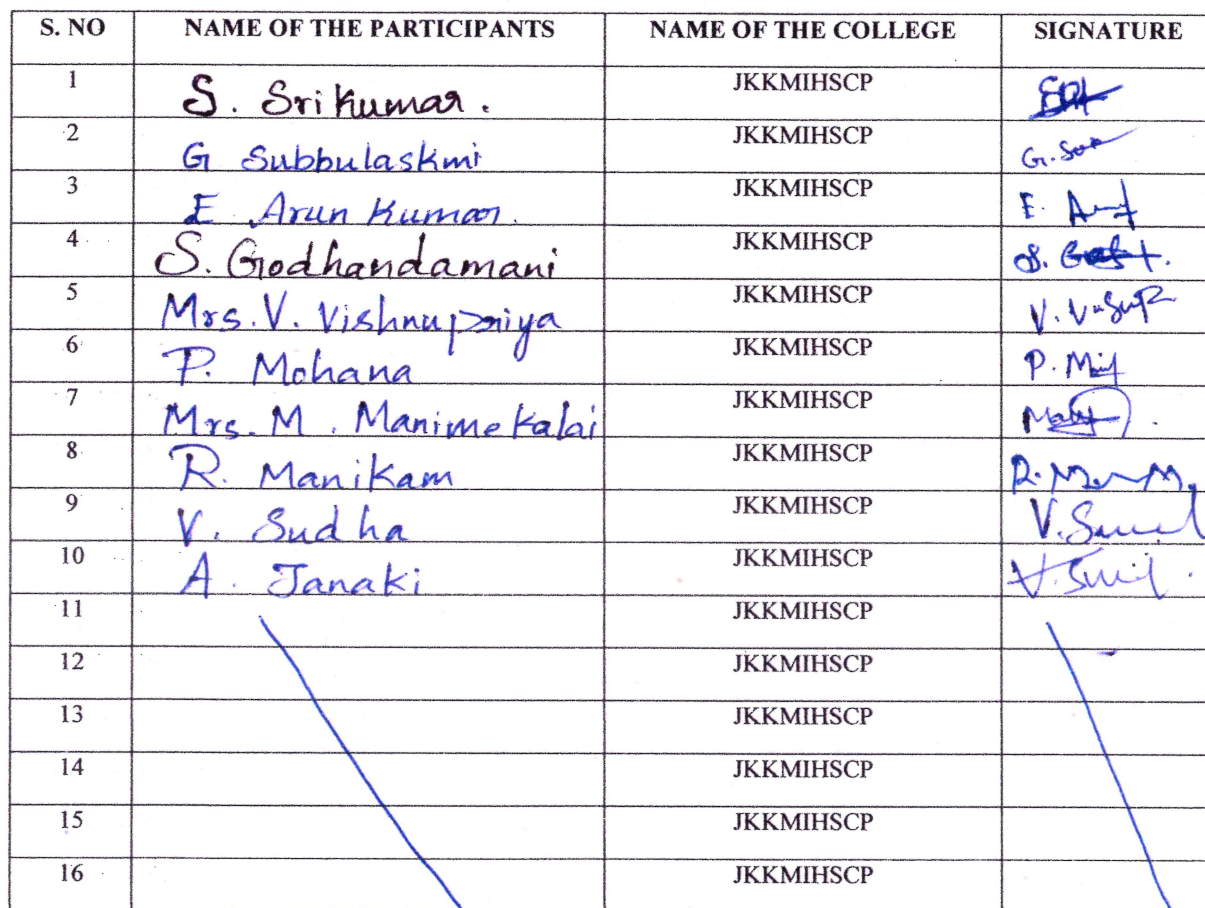 S. NO NAME OF THE PARTICIPANTS NAME OF THE COLLEGE SIGNATURE
1 S. Srikumar. JKKMIHSCP
2 G Subbulaskmi JKKMIHSCP
3 E Arun Kumar. JKKMIHSCP E.
4 S. Godhandamani JKKMIHSCP S.
5 Mrs. V. Vishnupriya JKKMIHSCP V.
6 P. Mohana JKKMIHSCP P.
7 Mrs. M. Manimekalai JKKMIHSCP
8 R. Manikam JKKMIHSCP R.
9 V. Sudha JKKMIHSCP V.
10 A. Janaki JKKMIHSCP
11 JKKMIHSCP
12 JKKMIHSCP
13 JKKMIHSCP
14 JKKMIHSCP
15 JKKMIHSCP
16 JKKMIHSCP